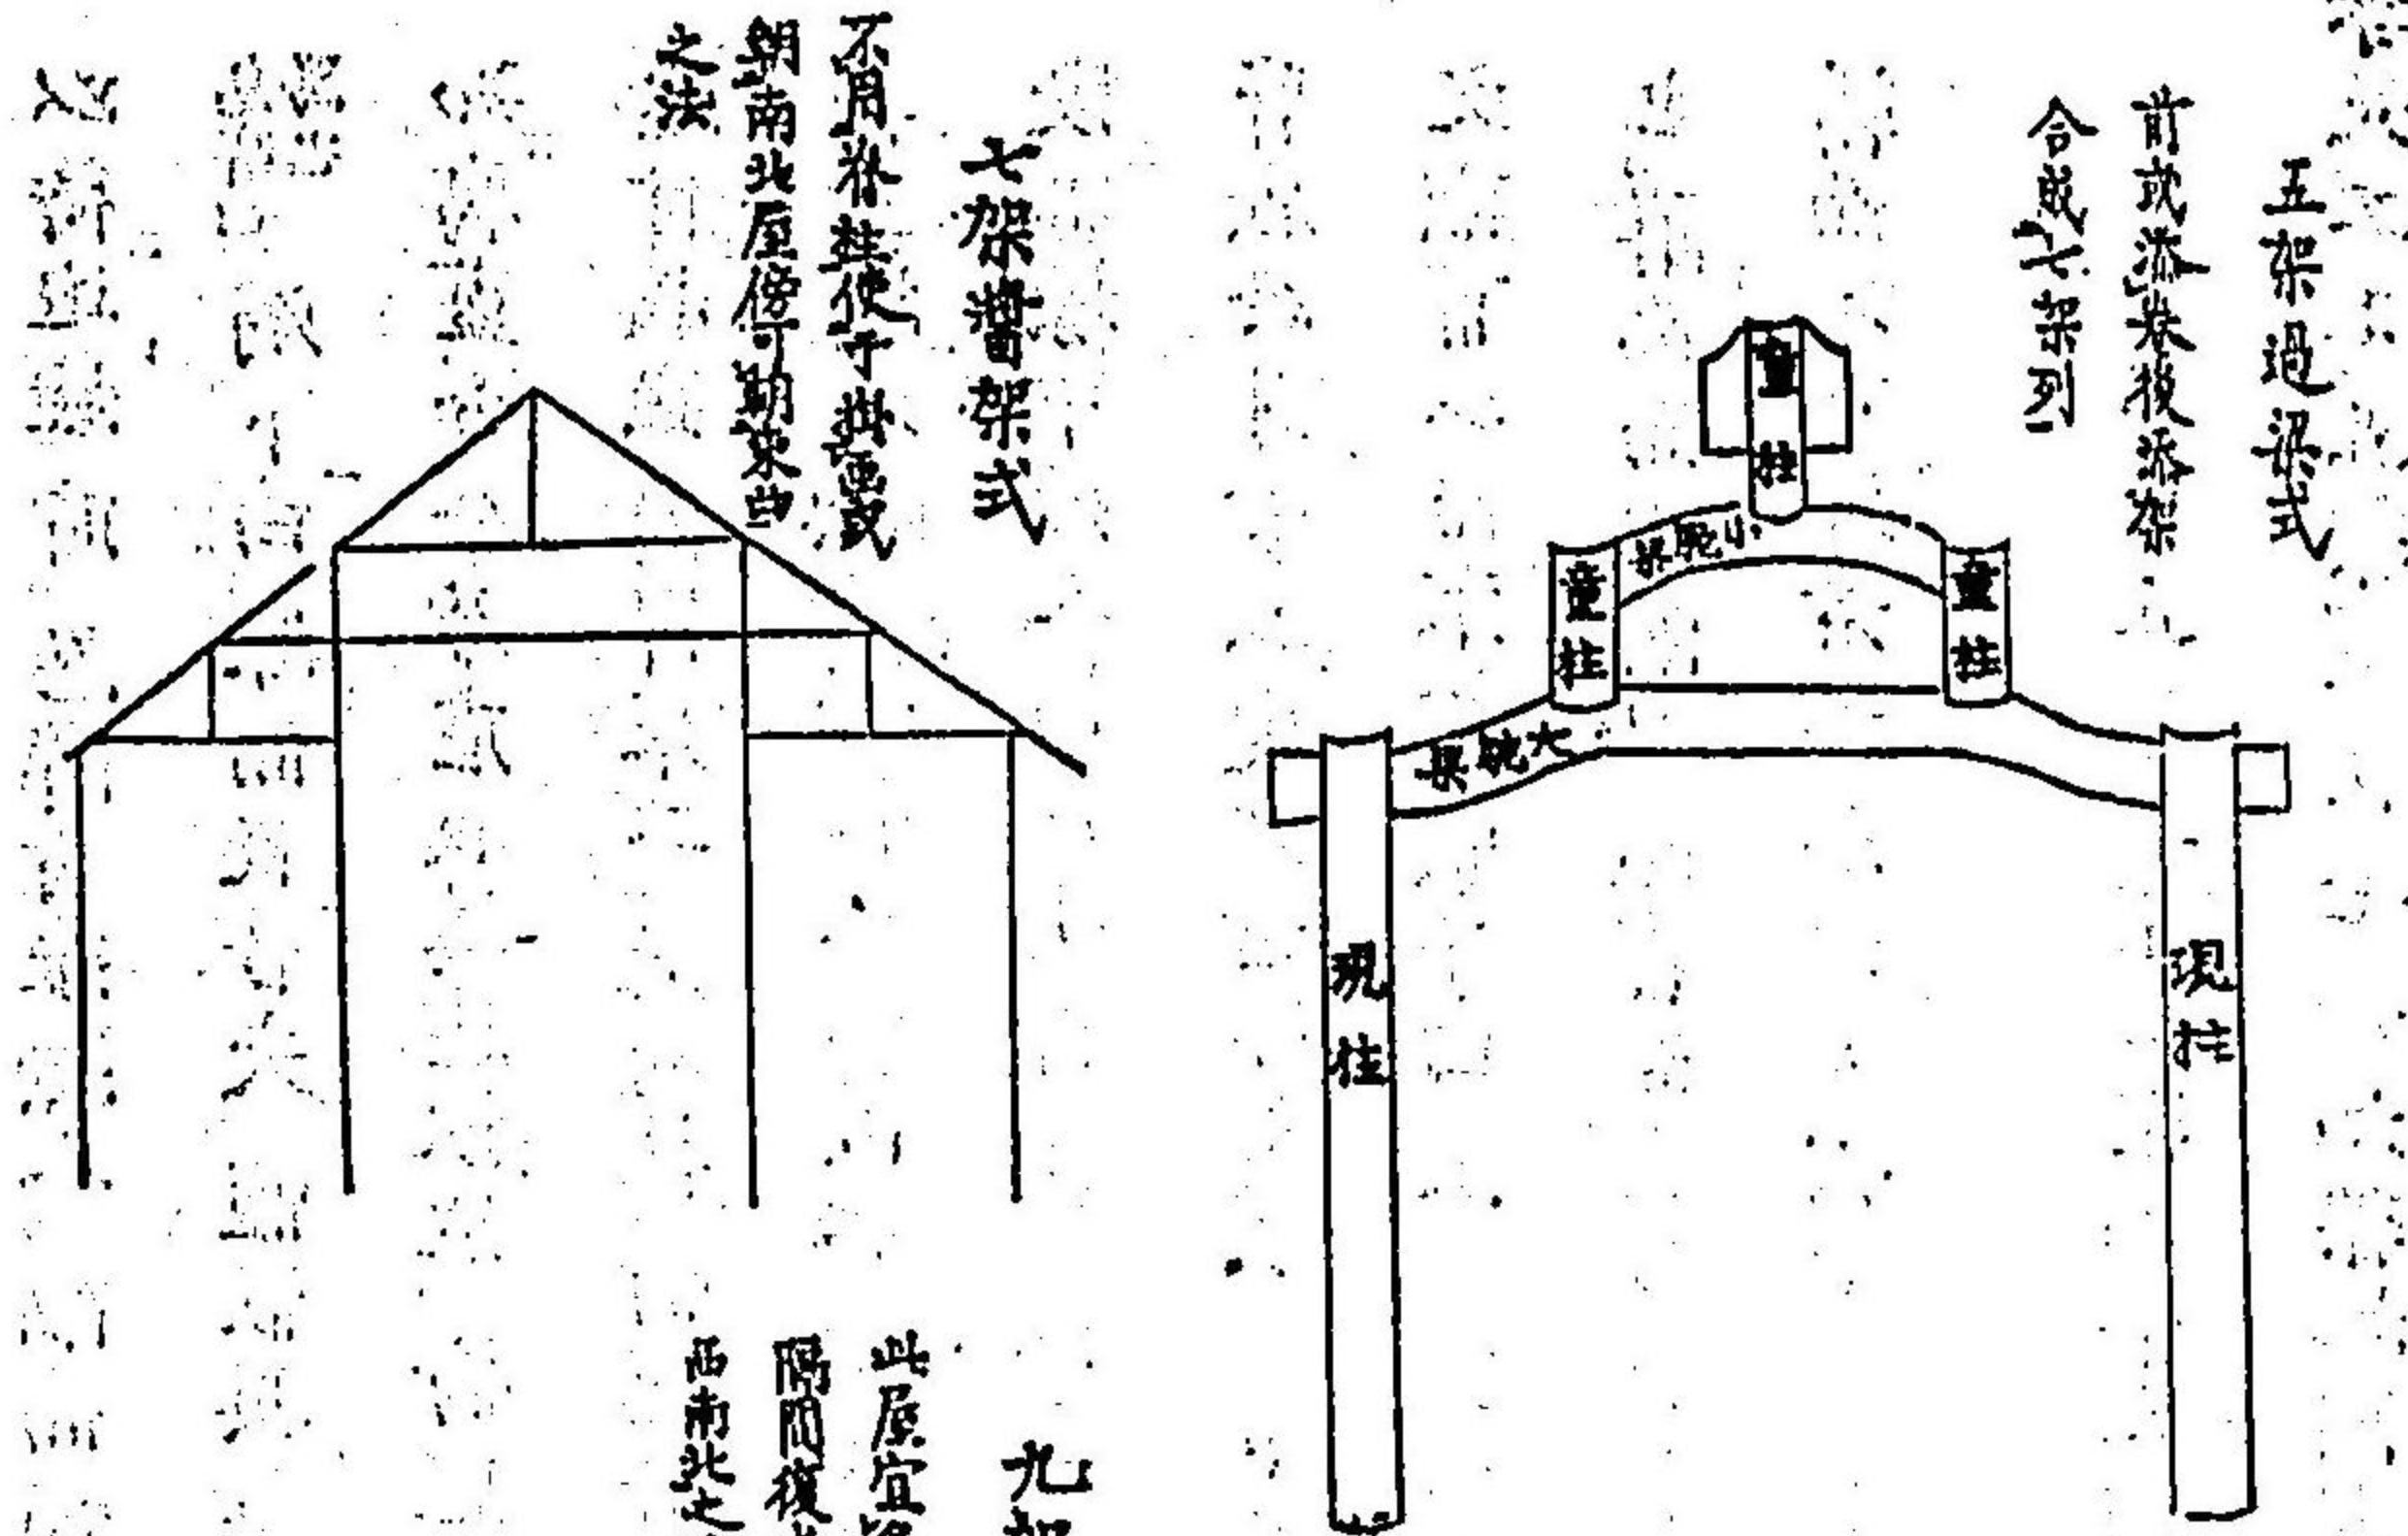 五架過梁式
前或添卷後添架
合成七架列
童柱
小駝梁
童柱
童柱
大駝梁
現柱
現柱
七架醬架式
不用脊柱便于挂画或
朝南北屋傍可朝東西
之法
九架
此屋宜
隔間復
西南北之